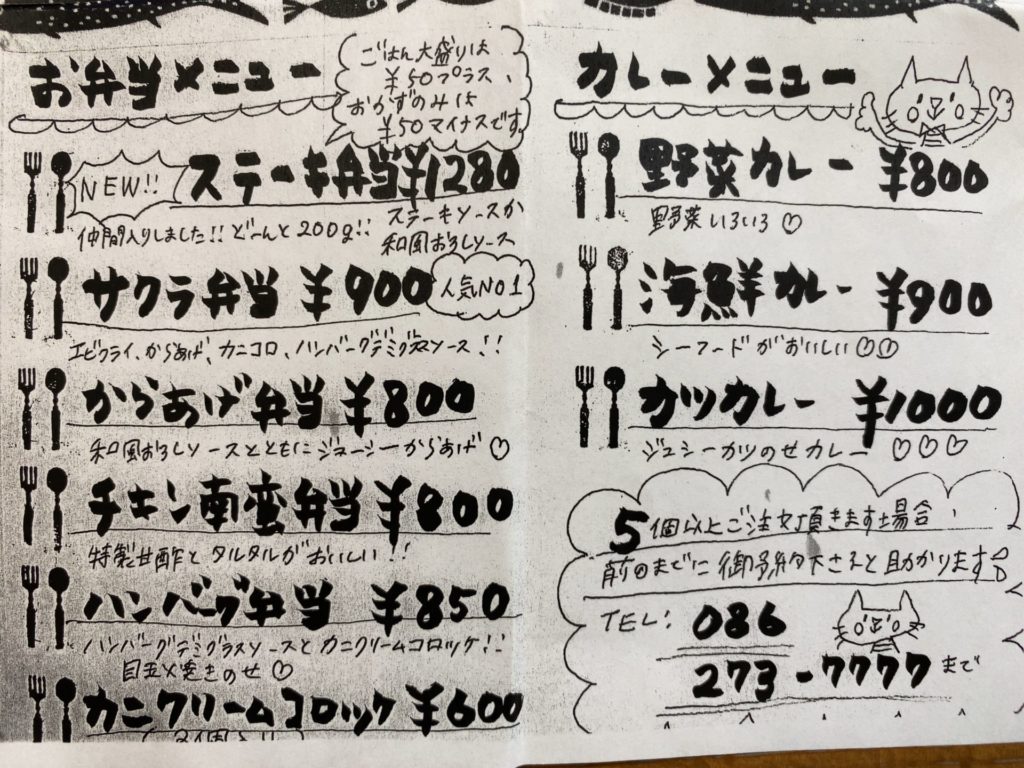 お弁当メニュー
ごはん大盛りは
¥50プラス、
おかずのみは
¥50マイナスです。
NEW!!
ステーキ弁当¥1280
仲間入りしました!!どーんと200g!!
ステーキソースか
和風おろしソース
サクラ弁当 ¥900
人気NO1
エビフライ、からあげ、カニコロ、ハンバーグデミグラスソース!!
からあげ弁当 ¥800
和風おろしソースとともにジューシーからあげ♡
チキン南蛮弁当 ¥800
特製甘酢とタルタルがおいしい!!
ハンバーグ弁当 ¥850
ハンバーグデミグラスソースとカニクリームコロッケ!!
目玉メ焼きのせ♡
カニクリームコロッケ ¥600
カレーメニュー
野菜カレー ¥800
野菜いろいろ♡
海鮮カレー ¥900
シーフードがおいしい♡♡
カツカレー ¥1000
ジュシーカツのせカレー ♡♡♡
5個以上ご注文頂きます場合、
前日までに御予約下さると助かります
TEL: 086
273-7777まで